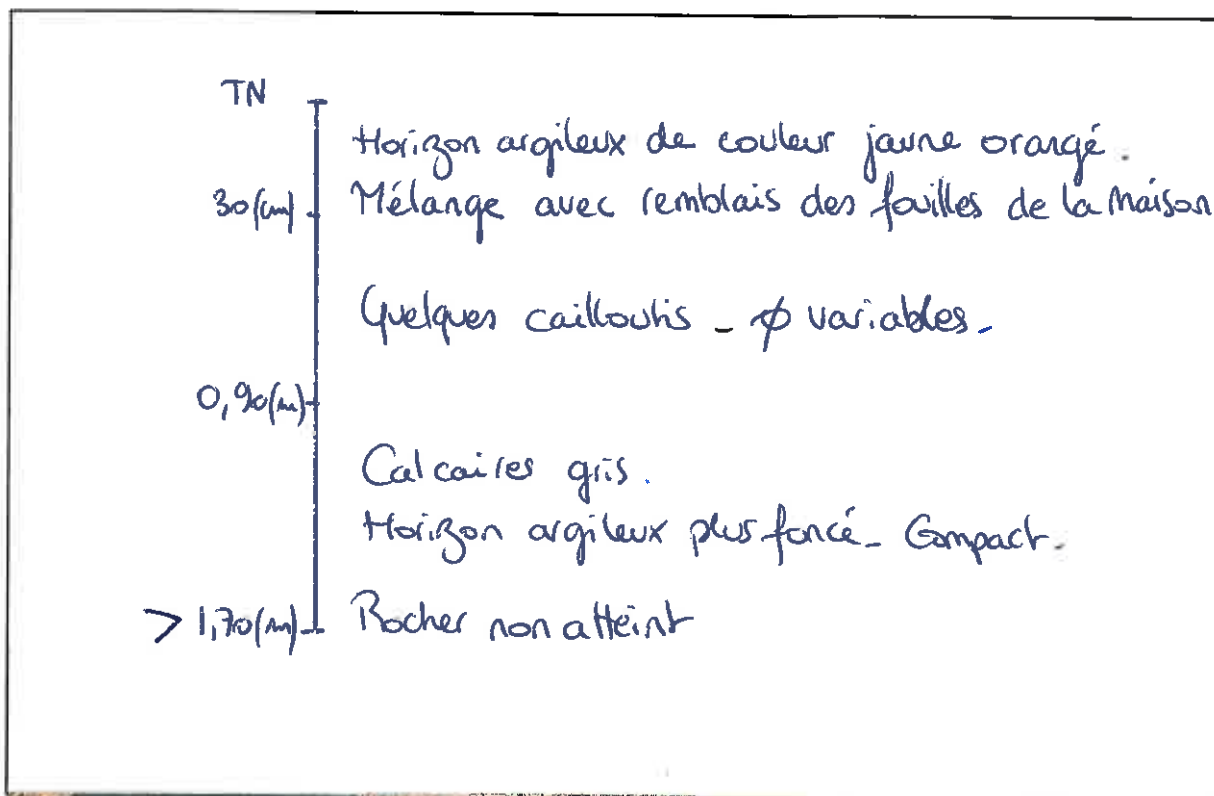 TN
Horizon argileux de couleur jaune orangé.
30(cm) Mélange avec remblais des fouilles de la Maison
Quelques cailloutis - ϕ variables.
0,90(m)
Calcaires gris.
Horizon argileux plus foncé - Compact.
> 1,70(m) Rocher non atteint